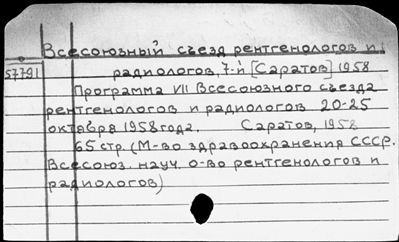 Всесоюзный съезд рентгенологов и
радиологов, 7-й [Саратов] 1958
57791
Программа VII Всесоюзного съезда
рентгенологов и радиологов 20-25
октября 1958 года. Саратов, 1958
65 стр. (М-во здравоохранения СССР.
Всесоюз. науч. о-во рентгенологов и
радиологов)